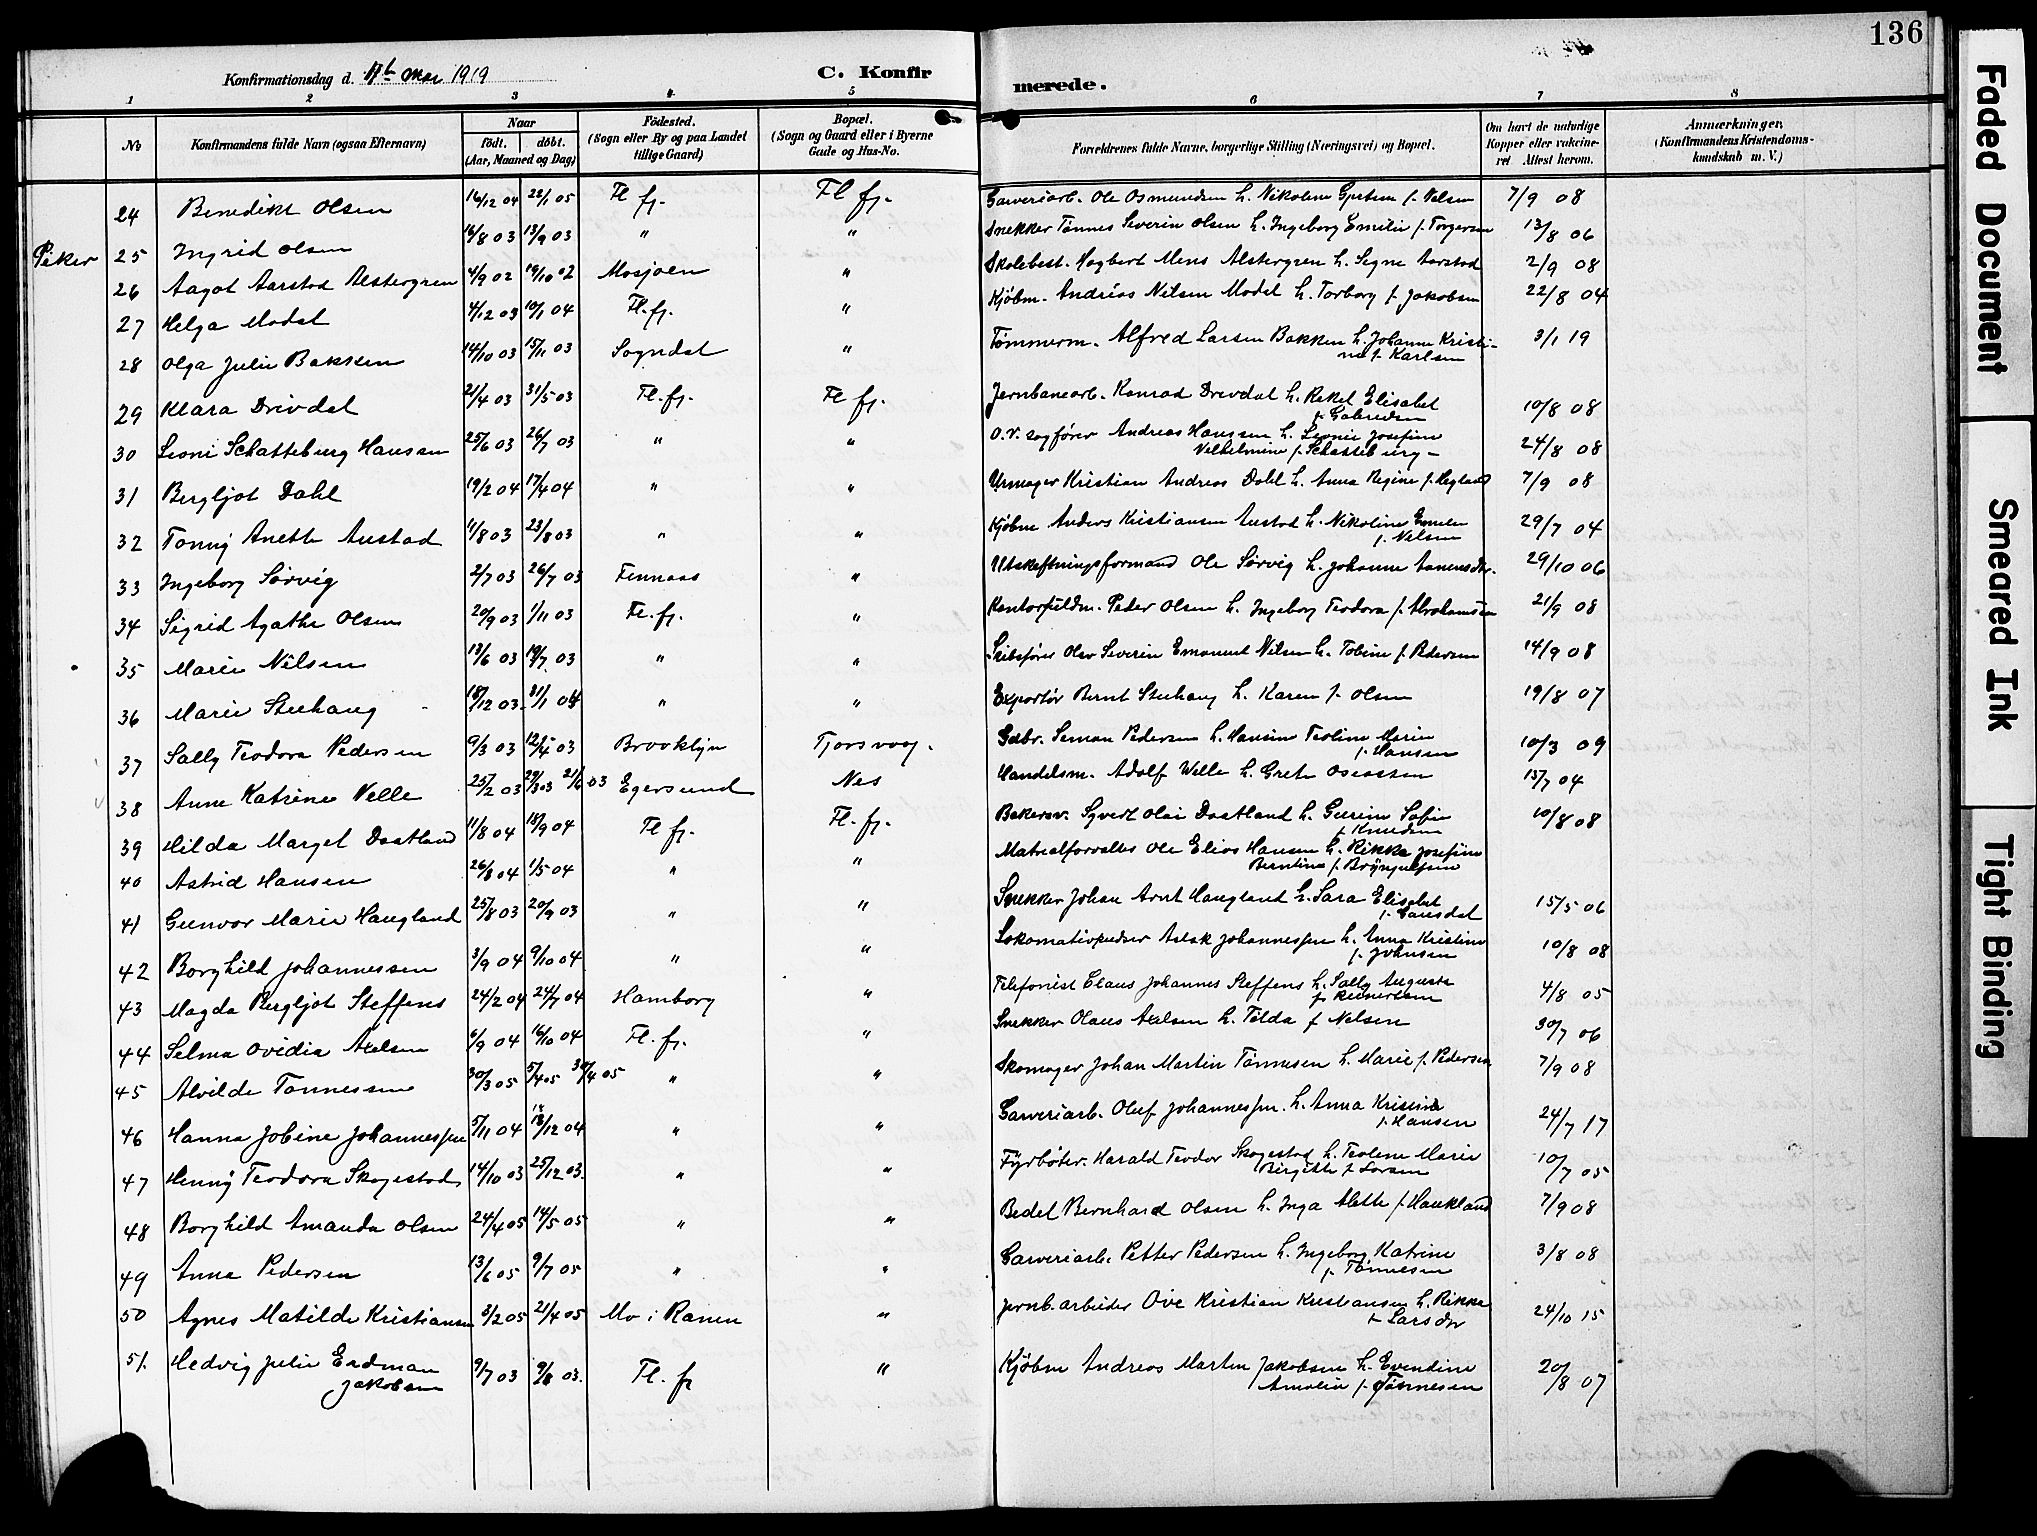 136
Konfirmationsdag d. Mai 1919 C. Konfirmerede.
1 2 3 4 5 6 7 8
No Konfirmandens fulde Navn (ogsaa Efternavn) Naar födt. döbt. (Aar, Maaned og Dag) Födested. (Sogn eller By og paa Landet tillige Gaard) Bopæl. (Sogn og Gaard eller i Byerne Gade og Hus-No. Forældrenes fulde Navne, borgerlige Stilling (Næringsvei) og Bopæl. Om havt de naturlige Kopper eller vakcineret Attest herom. Anmærkninger, (Konfirmandens Kristendomskundskab m. V.)
24 Benedikt Olsen 16/12 04 22/1 05 Fl fj. Fl fj. Garveriarb. Ole Osmundsen h. Nikoline f. Nelsen 7/9 08
Piker 25 Ingrid Olsen 16/8 03 13/9 03 " " Snekker Tønnes Severin Olsen h. Ingeborg Emilie f. Torgersen 13/8 06
26 Aagot Aarstad Alstergren 4/9 02 19/10 02 Mosjøen " Skolebest. Hagbert Mens Alstergren h. Signe Aarstad 2/9 08
27 Helga Modal 4/12 03 10/1 04 Fl. fj. " Kjøbm. Andreas Nilsen Modal h. Torborg f. Jakobsen 22/8 04
28 Olga Julie Bakken 14/10 03 15/11 03 Sogndal " Tømmerm. Alfred Larsen Bakken h. Johanne Kristi-
ne f. Karlsen 3/1 19
29 Klara Drivdal 21/4 03 31/5 03 Fl. fj. Fl fj. Jernbanearb. Konrad Drivdal h. Rakel Elisabet
f. Gabrielsen 10/8 08
30 Leoni Schatteburg Hanssen 25/6 03 26/7 03 " " O.r. sagfører Andreas Hanssen h. Leonie Josefine
Vilhelmine f. Schatteburg - 24/8 08
31 Bergljot Dahl 19/2 04 17/4 04 " " Urmager Kristian Andreas Dahl h. Anna Regine f. Hegland 7/9 08
32 Tonny Anette Austad 11/8 03 23/8 03 " " Kjøbm Anders Kristiansen Austad h. Nikoline Emelie
f. Nelsen 29/7 04
33 Ingeborg Sørvig 2/7 03 26/7 03 Finnaas " Utskiftningsformand Ole Sørvig h. Johanne Aanensdtr. 29/10 06
34 Sigrid Agathe Olsen 20/9 03 1/11 03 Fl. fj. " Kontorfuldm. Peder Olsen h. Ingeborg Teodora f. Abrahamsen 21/9 08
35 Marie Nilsen 13/6 03 19/7 03 " " Skibsfører Olav Severin Emanuel Nilsen h. Tobine f. Pedersen 14/9 08
36 Marie Stuhaug 18/12 03 31/1 04 " " Exportør Bernt Stuhaug h. Karen f. Olsen 19/8 07
37 Sally Teodora Pedersen 9/3 03 12/4 03 Brooklyn Tjorsvaag. Gdbr. Simon Pedersen h. Hansine Teoline Marie
f. Hansen 10/3 09
38 Anne Katrine Velle 25/2 03 29/3 03 21/6 03 Egersund Nes Handelsm. Adolf Velle h. Grete Oseassen 15/7 04
39 Hilda Marget Daatland 11/8 04 18/9 04 Fl fj. Fl. fj. Bakersv. Syvert Olai Daatland h. Gurine Sofie
f. Knudsen 10/8 08
40 Astrid Hansen 26/3 04 1/5 04 " " Matrealforvalter Ole Elias Hansen h. Rikka Josefine
Berntine f. Brynjulfsen
41 Gunvor Marie Haugland 25/8 03 20/9 03 " " Snekker Johan Arnt Haugland h. Sara Elisabet
f. Gausdal 15/5 06
42 Borghild Johannessen 3/9 04 9/10 04 " " Lokomativpudser Aslak Johannessen h. Anna Kristine
f. Johnsen 10/8 08
43 Magda Bergljot Steffens 24/2 04 24/7 04 Hamborg " Telefonist Claus Johannes Steffens h. Sally Auguste
f. Reinertsen 4/8 05
44 Selma Ovidia Axelsen 6/9 04 16/10 04 Fl. fj. " Snekker Olaus Axelsen h. Tilda f Nelsen 30/7 06
45 Alvilde Tønnessen 30/3 05 5/4 05 30/4 05 " " Skomager Johan Martin Tønnesen h. Marie f. Pedersen 7/9 08
46 Hanna Jobine Johannessen 5/11 04 18/12 04 " " Garveriarb. Oluf Johannessen. h. Anna Kristine
f. Hansen 24/7 17
47 Henny Teodora Skogestad 14/10 03 25/12 03. " " Fyrbøter. Harald Teodor Skogestad h. Teoline Marie
Birgitte f. Larsen 10/7 05
48 Borghild Amanda Olsen 24/4 05 14/5 05 " " Bedel Bernhard Olsen h. Inga Alette f. Haukland 7/9 08
49 Anna Pedersen 13/6 05 9/7 05 " " Garveriarb. Petter Pedersen h. Ingeborg Katrine
f. Tønnesen 3/8 08
50 Agnes Matilde Kristiansen 3/2 05 21/4 05 Mo i Ranen " Jernb. arbeider Ove Kristian Kristiansen h. Rikke
f. Larsdtr 24/10 15
51. Hedvig Julie Erdman
Jakobsen 9/7 03 9/8 03. Fl. fj " Kjøbm Andreas Martin Jakobsen h. Evendine
Amalie f. Tønnesen 20/8 07
Faded Document
Smeared Ink
Tight Binding